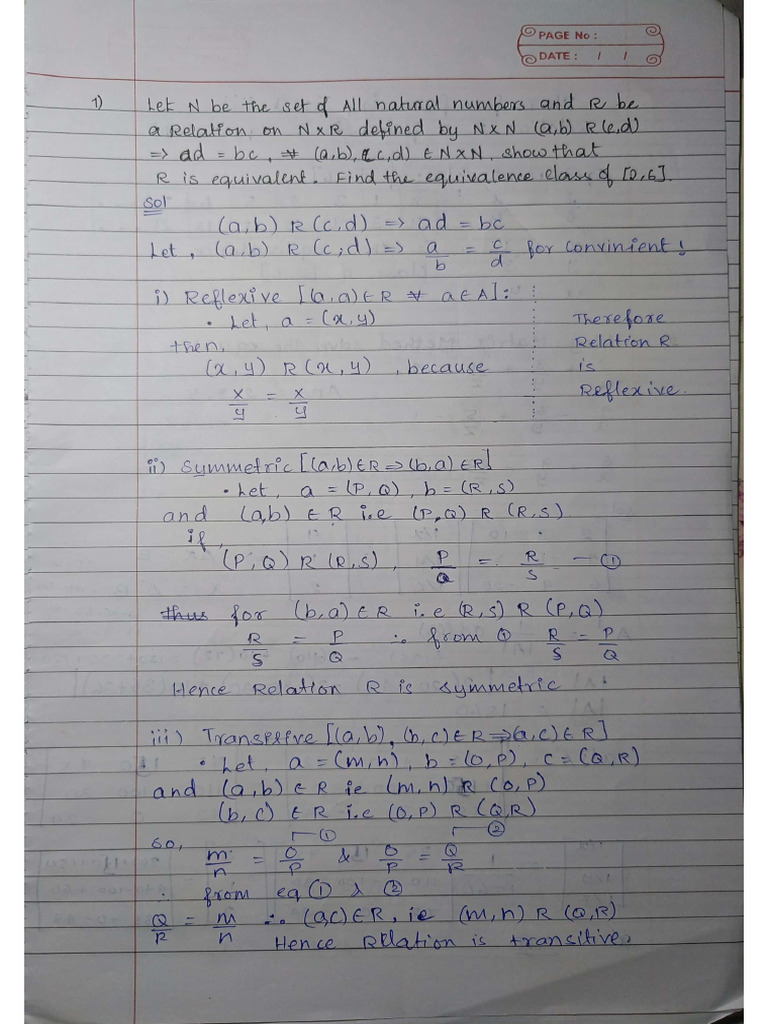 PAGE No :
DATE : / /
1) Let N be the set of All natural numbers and R be
a Relation on N×R defined by N×N (a,b) R(c,d)
=> ad = bc, ∀ (a,b), (c,d) ∈ N×N, show that
R is equivalent. Find the equivalence class of [2,6].
Sol
(a,b) R (c,d) => ad = bc
Let, (a,b) R (c,d) => a/b = c/d for convinient!
i) Reflexive [(a,a) ∈ R ∀ a ∈ A]:
• Let, a = (x,y)
then,
(x,y) R (x,y), because
x/y = x/y
Therefore
Relation R
is
Reflexive.
ii) Symmetric [(a,b) ∈ R => (b,a) ∈ R]
• Let, a = (P,Q), b = (R,S)
and (a,b) ∈ R i.e (P,Q) R (R,S)
if,
(P,Q) R (R,S), P/Q = R/S — ①
thus for (b,a) ∈ R i.e (R,S) R (P,Q)
R/S = P/Q ∴ from ① R/S = P/Q
Hence Relation R is symmetric
iii) Transitive [(a,b), (b,c) ∈ R => (a,c) ∈ R]
• Let, a = (m,n), b = (O,P), c = (Q,R)
and (a,b) ∈ R ie (m,n) R (O,P)
(b,c) ∈ R i.e (O,P) R (Q,R)
so, ① ②
m/n = O/P & O/P = Q/R
∴ from eq ① & ②
Q/R = m/n ∴ (a,c) ∈ R, ie (m,n) R (Q,R)
Hence Relation is transitive.